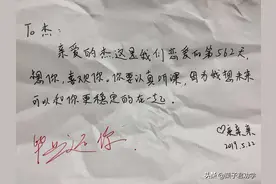 To 杰:
亲爱的杰,这是我们恋爱的第562天,
想你,喜欢你,你要认真听课,因为我想未来
可以和你更稳定的在一起。
毕业还你
亲亲
2019.5.22
头条@孩子在劝学